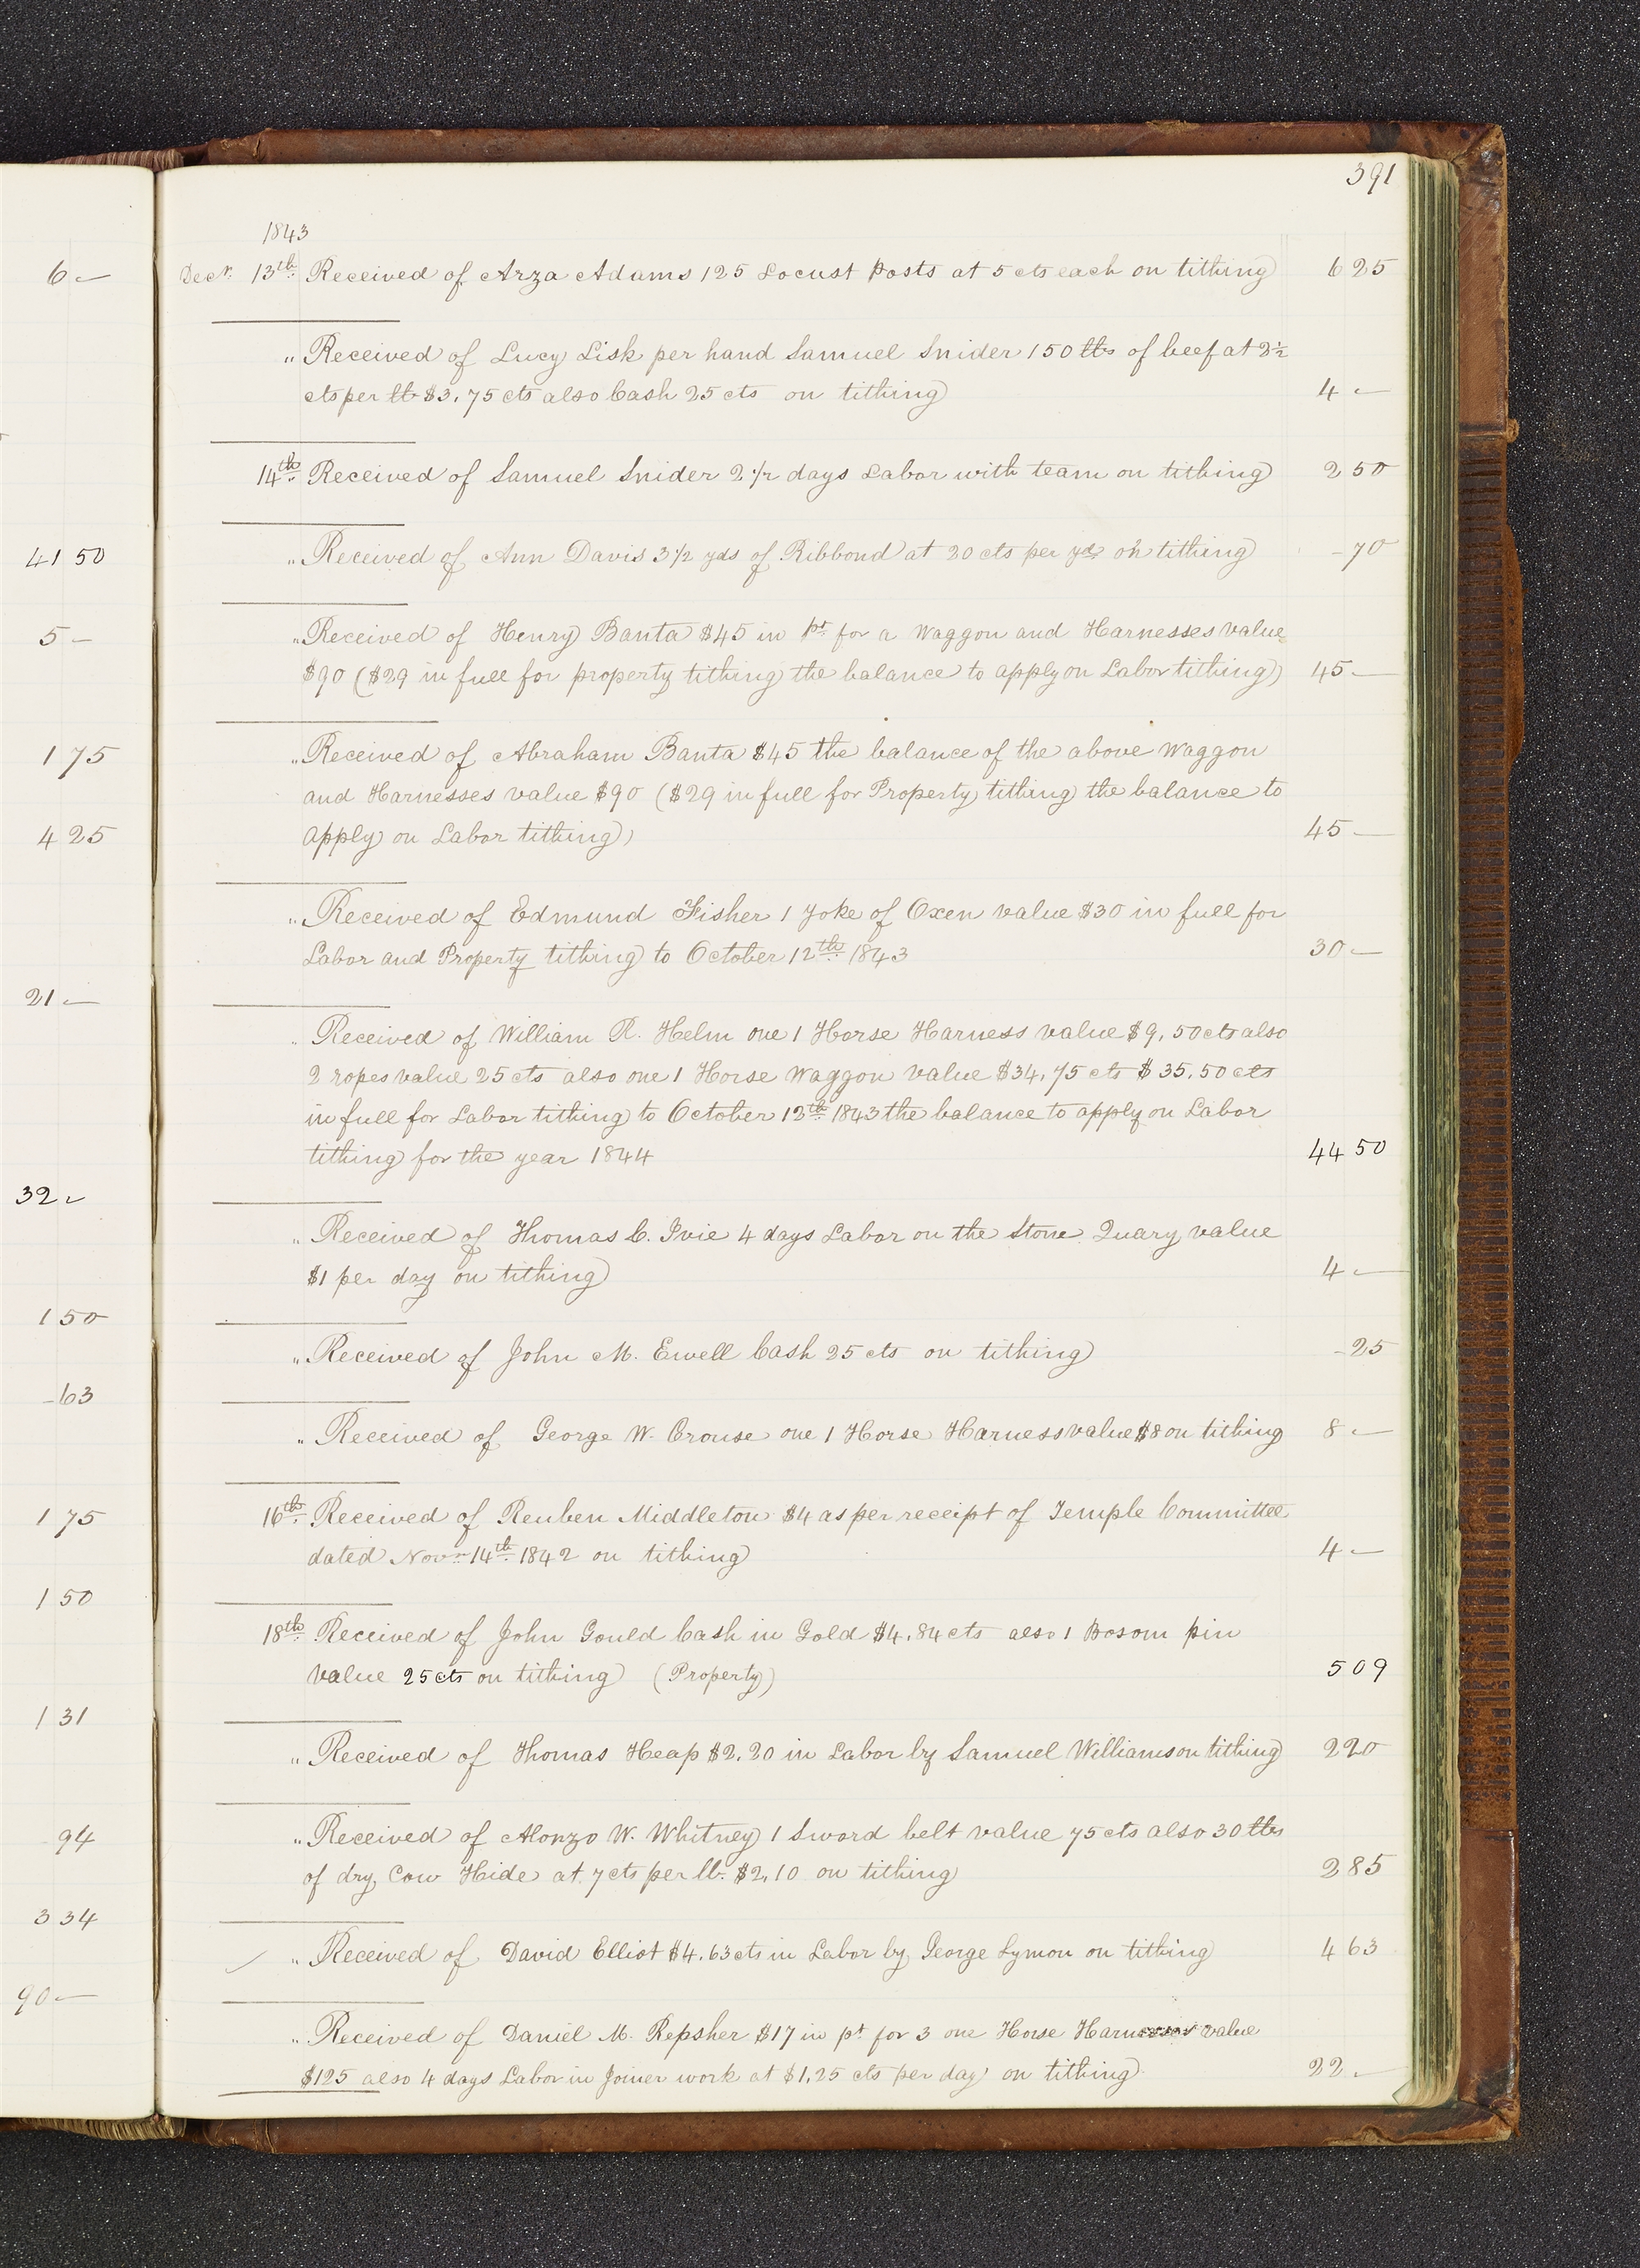 391
1843
Decr. 13th. Received of Arza Adams 125 Locust Posts at 5 cts each on tithing 6 25
" Received of Lucy Lisk per hand Samuel Snider 150 lbs of beef at 2½
cts per lb $3.75 cts also Cash 25 cts on tithing 4 —
14th. Received of Samuel Snider 2 1/2 days Labor with team on tithing 2 50
" Received of Ann Davis 3 1/2 yds of Ribbond at 20 cts per yd on tithing - 70
" Received of Henry Banta $45 in pt. for a Waggon and Harnesses value
$90 ($29 in full for property tithing the balance to apply on Labor tithing) 45 —
" Received of Abraham Banta $45 the balance of the above Waggon
and Harnesses value $90 ($29 in full for Property tithing the balance to
apply on Labor tithing) 45 —
" Received of Edmund Fisher 1 Yoke of Oxen value $30 in full for
Labor and Property tithing to October 12th. 1843 30 —
" Received of William R. Helm one 1 Horse Harness value $9.50 cts also
2 ropes value 25 cts also one 1 Horse Waggon value $34.75 cts $35.50 cts
in full for Labor tithing to October 12th. 1843 the balance to apply on Labor
tithing for the year 1844 44 50
" Received of Thomas C. Ivie 4 days Labor on the Stone Quary value
$1 per day on tithing 4 —
" Received of John M. Ewell Cash 25 cts on tithing - 25
" Received of George W. Crouse one 1 Horse Harness value $8 on tithing 8 —
16th. Received of Reuben Middleton $4 as per receipt of Temple Committee
dated Novr. 14th. 1842 on tithing 4 —
18th. Received of John Gould Cash in Gold $4.84 cts also 1 Bosom pin
value 25 cts on tithing (Property) 5 09
" Received of Thomas Heap $2.20 in Labor by Samuel Williams on tithing 2 20
" Received of Alonzo W. Whitney 1 Sword belt value 75 cts also 30 lbs
of dry Cow Hide at 7 cts per lb. $2.10 on tithing 2 85
" Received of David Elliot $4.63 cts in Labor by George Lymon on tithing 4 63
" Received of Daniel M. Repsher $17 in pt for 3 one Horse Harnesses value
$125 also 4 days Labor in Joiner work at $1.25 cts per day on tithing 22 —
6 —
41 50
5 —
1 75
4 25
21 —
32 -
1 50
- 63
1 75
1 50
1 31
94
3 34
90 —